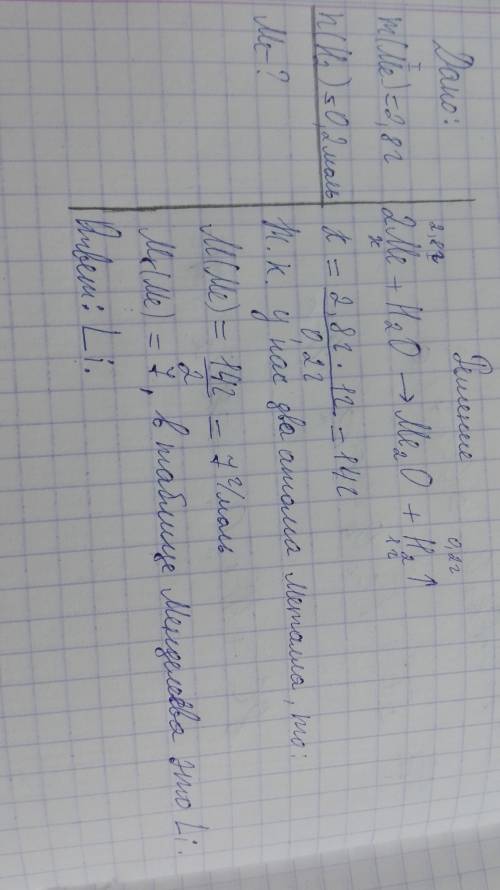 Дано:
m(Me) = 2,8г
n(H₂) = 0,2 моль
Me - ?
Решение
2,8г 0,2г
2Me + H₂O → Me₂O + H₂↑
x 1г
x = 2,8г · 1г / 0,2г = 14г
Т.к. у нас два атома металла, то:
M(Me) = 14г / 2 = 7 г/моль
Mr(Me) = 7, в таблице Менделеева это Li.
Ответ: Li.